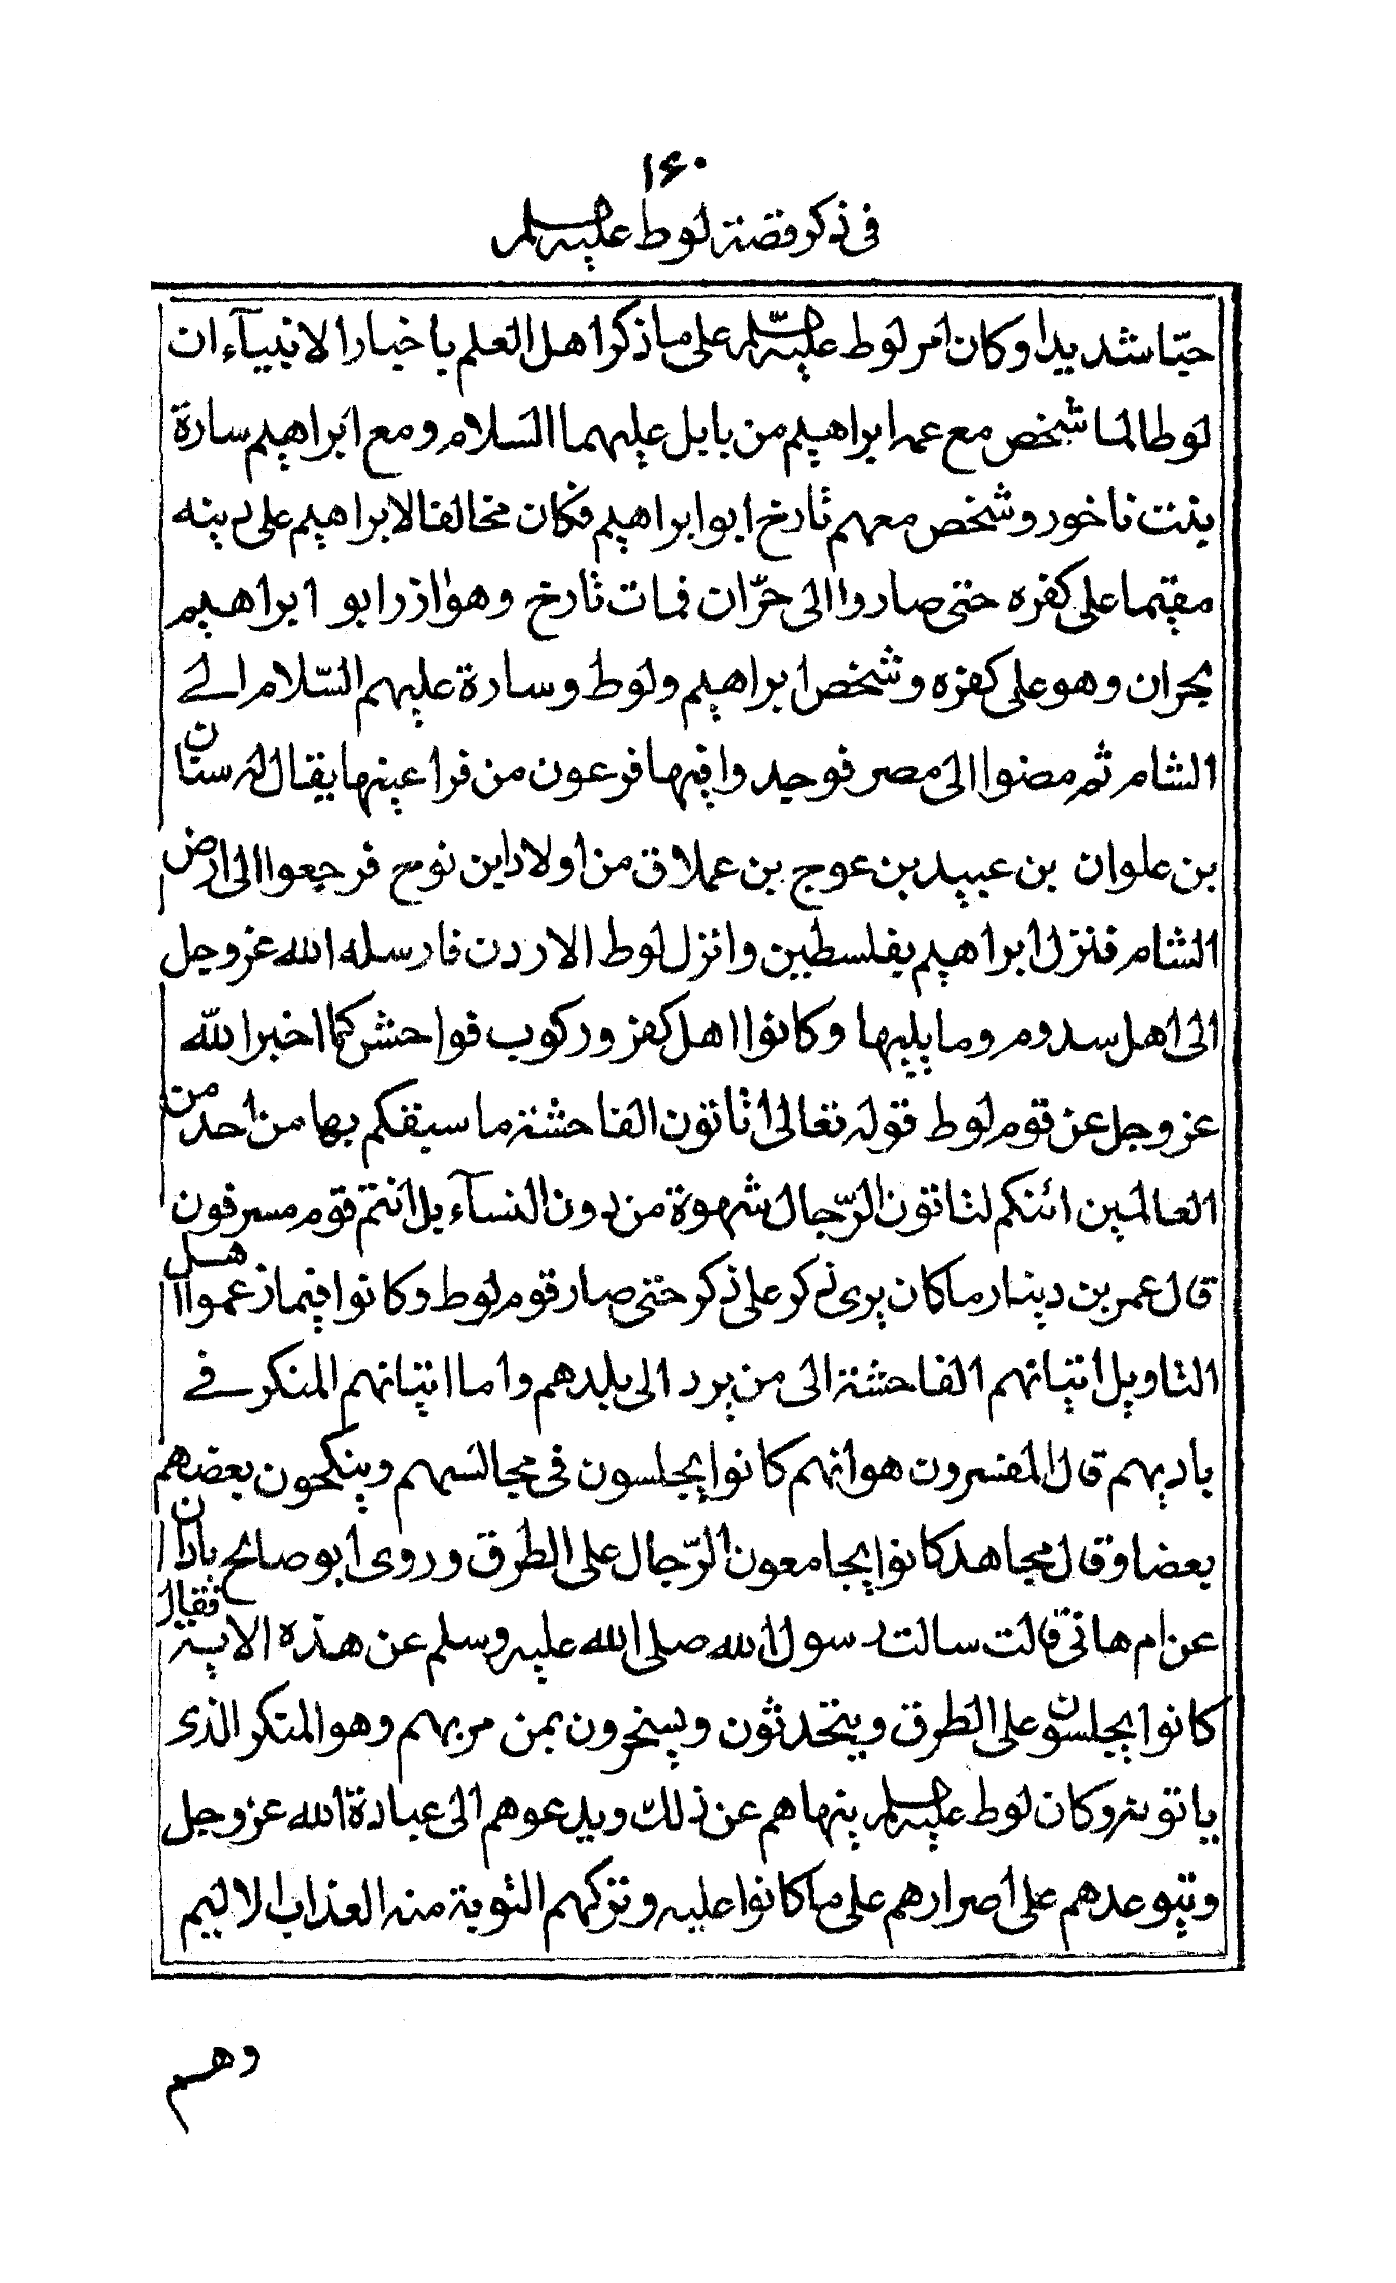 ١۶٠
في ذكر قصة لوط عليه السلم
حبّا شديدا وكان امر لوط عليه السّلم على ما ذكر اهل العلم باخبار الانبيآء ان
لوطا لما شخص مع عمه ابراهيم من بابل عليهما السلام ومع ابراهيم سارة
بنت ناخور وشخص معهم تارخ ابو ابراهيم فكان مخالفا لابراهيم على دينه
مقيما على كفره حتى صاروا الى حرّان فمات تارخ وهو ازر ابو ابراهيم
بحران وهو على كفره وشخص ابراهيم ولوط وسارة عليهم السّلام الى
الشام ثم مضوا الى مصر فوجدوا فيها فرعون من فراعينها يقال له سنان
بن علوان بن عبيد بن عوج بن عملاق من اولاد ابن نوح فرجعوا الى ارض
الشام فنزل ابراهيم بفلسطين وانزل لوط الاردن فارسله الله عز وجل
الى اهل سدوم وما يليها وكانوا اهل كفر وركوب فواحش كما اخبر الله
عز وجل عن قوم لوط قوله تعالى اتاتون الفاحشة ما سبقكم بها من احد من
العالمين ائنكم لتاتون الرّجال شهوة من دون النسآء بل انتم قوم مسرفون
قال عمر بن دينار ما كان يرى ذكر على ذكر حتى صار قوم لوط وكانوا فيما زعموا اهل
التاويل اتيانهم الفاحشة الى من يرد الى بلدهم واما اتيانهم المنكر في
ناديهم قال المفسرون هو انهم كانوا يجلسون في مجالسهم وينكحون بعضهم
بعضا وقال مجاهد كانوا يجامعون الرّجال على الطرق وروى ابو صالح باذان
عن ام هانى قالت سالت رسول الله صلى الله عليه وسلم عن هذه الاية فقال
كانوا يجلسون على الطرق ويتحدثون ويسخرون بمن مر بهم وهو المنكر الذى
ياتونه وكان لوط عليه السلم ينهاهم عن ذلك ويدعوهم الى عبادة الله عز وجل
ويتوعدهم على اصرارهم على ما كانوا عليه وتركهم التوبة منه العذاب الاليم
وهم